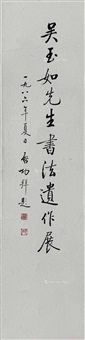 吴玉如先生書法遺作展
一九八六年夏日啓功拜題